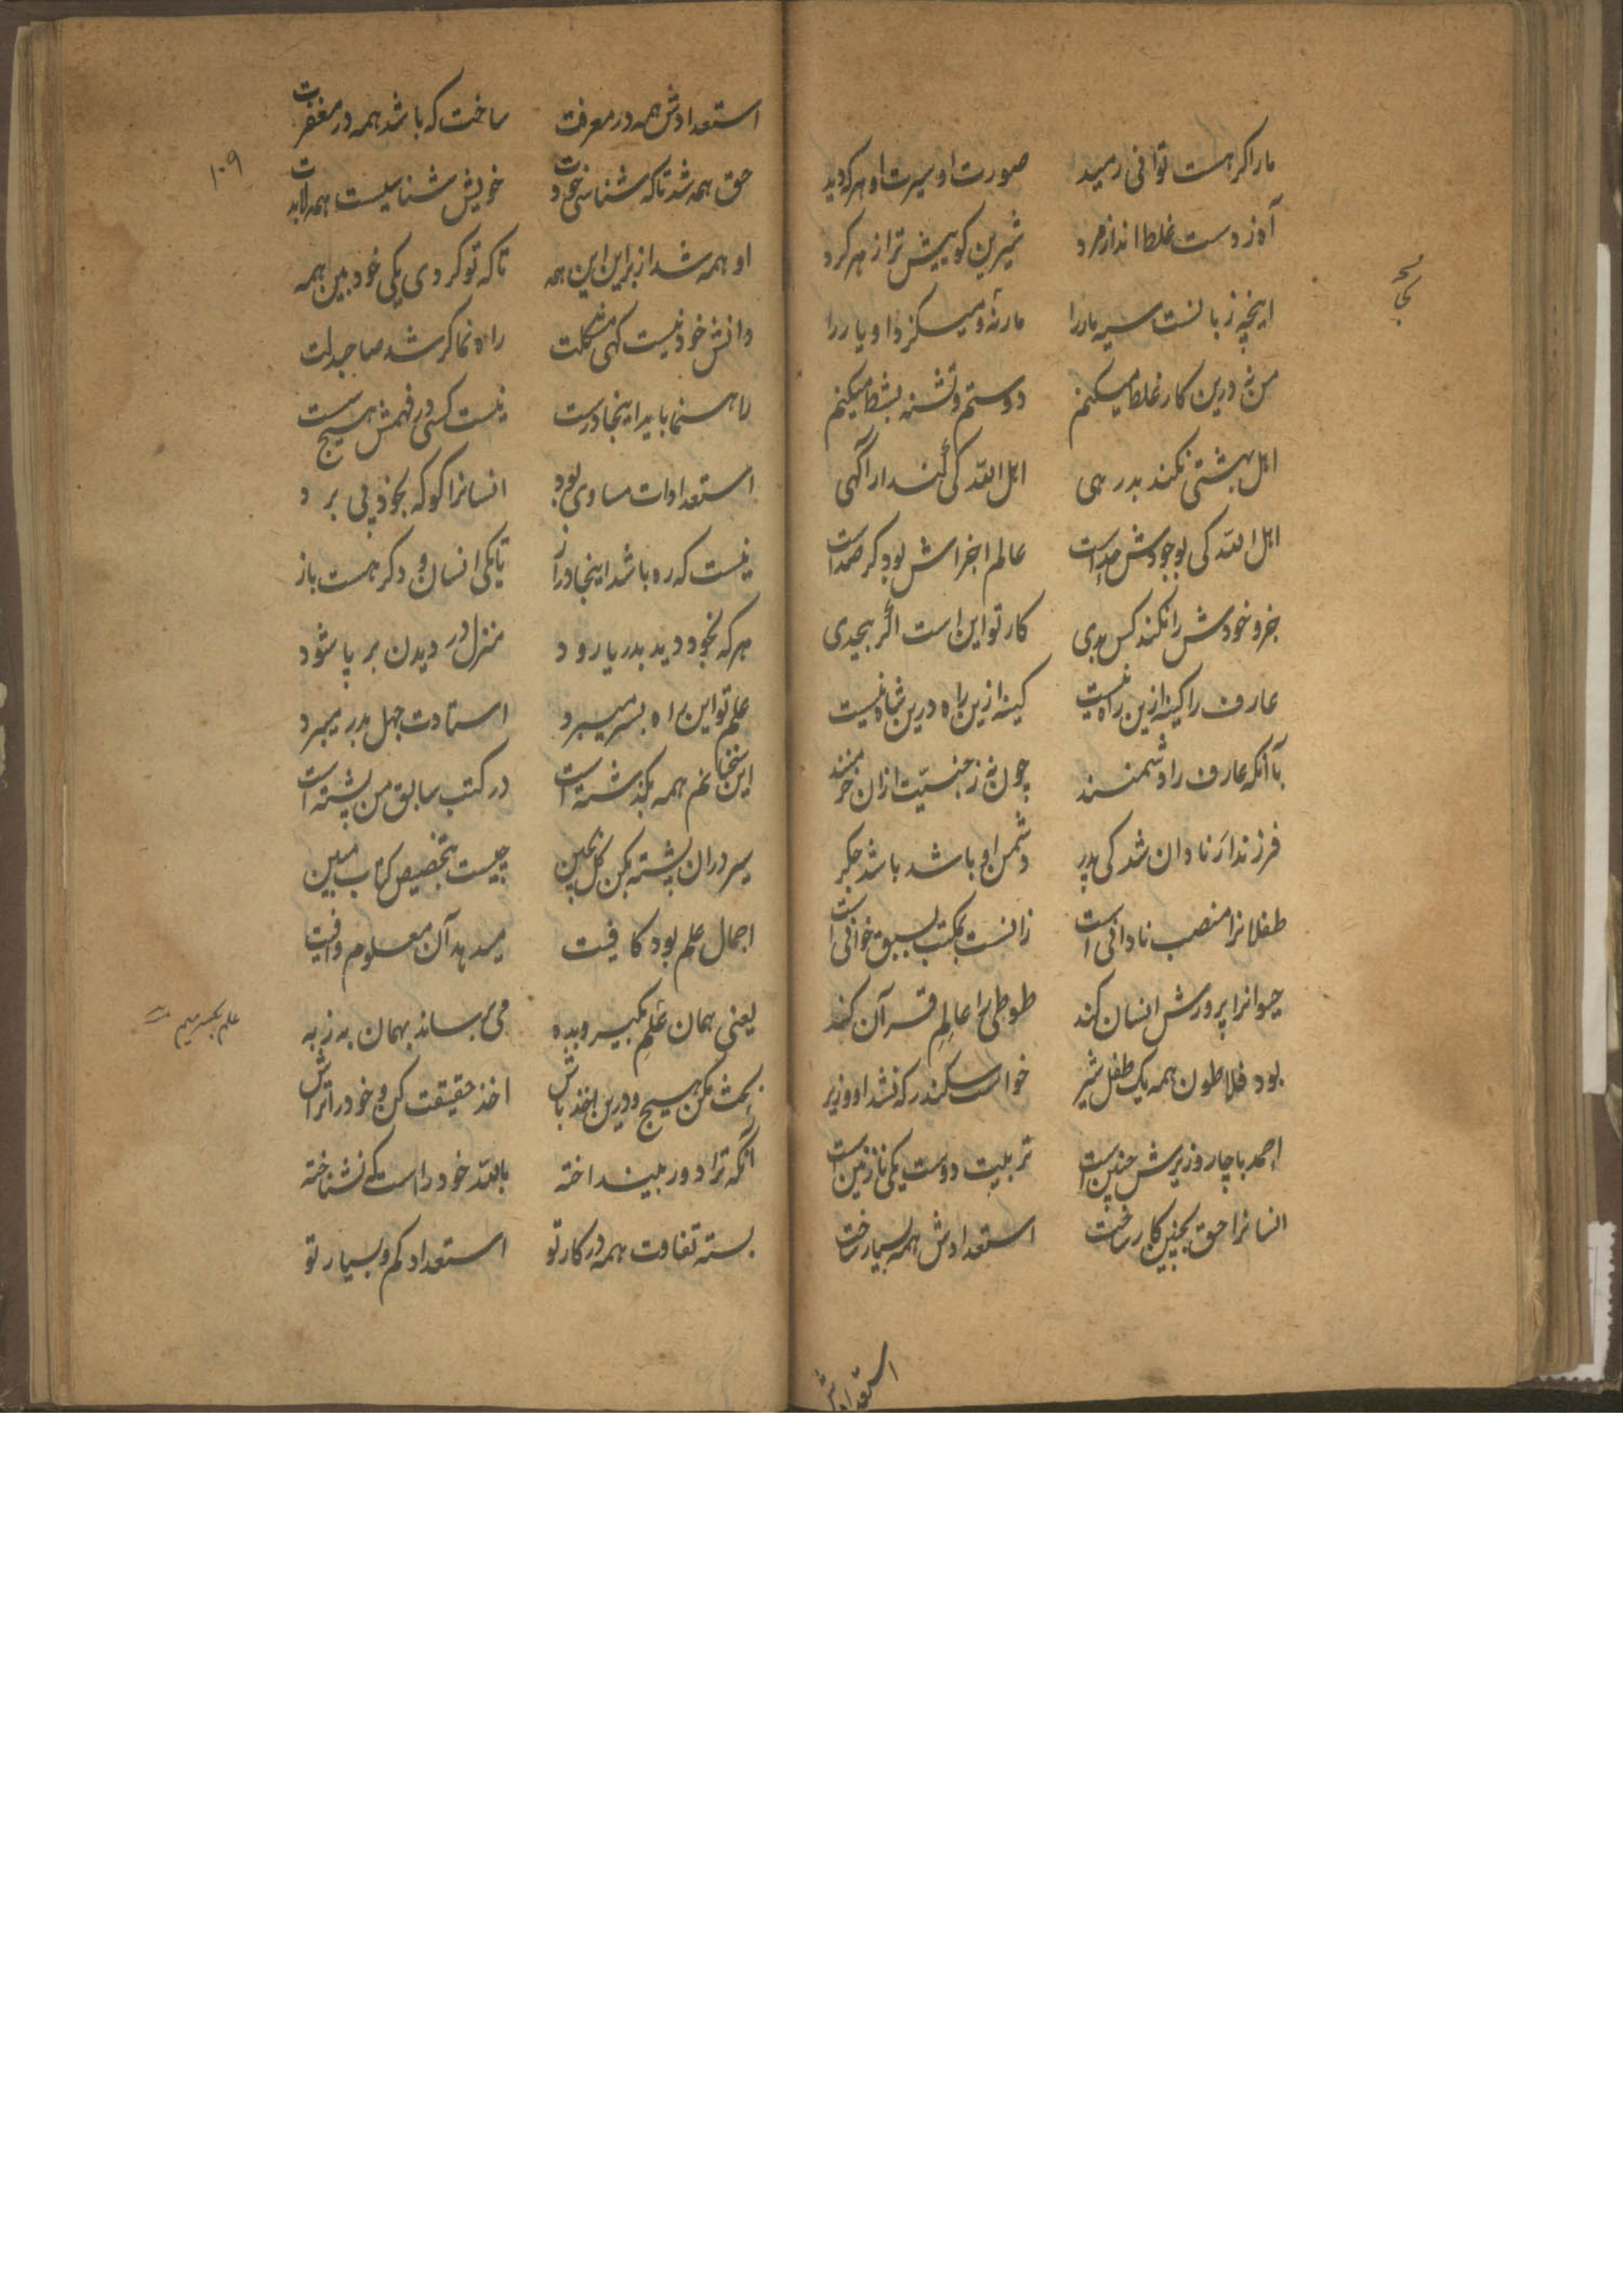 مارا کر هست توانی رمید صورت او سیرت او هر که دید
آه ز دست غلط انداز مرد شیرین کو پیش تر از هر کرد
اینچه زبانست سیه مار را مار نه و میکزد او یار را
من نه درین کار غلط میکنم دوستم و تشنه بشط میکنم
اهل بهشتی نکند بدرهی اهل الله کی کند ار آگهی
اهل الله کی بوجودش بداست عالم اجزاش بود کر صداست
جزو خودش را نکند کس بدی کار تو این است اگر بیحدی
عارف را کینه ازین راه نیست کینه ازین راه درین شاه نیست
با آنکه عارف را دشمنند چون نه ز جنسیت ازان خرمنند
فرزند ار نادان شد کی پدر دشمن او باشد باشد جکر
طفلانرا منصب نادانی است زانست بمکتب بسبق خوانی است
حیوانرا پرورش انسان کند طوطی را عالم قرآن کند
بود فلاطون همه یک طفل شیر خواست سکندر که نشد او وزیر
احمد با چار وزیرش چنین است تربیت دوست یکی نازنین است
انسانرا حق بچنین کار ساخت استعدادش همه بسیار ساخت
استعدادش
۱۰۹
استعدادش همه در معرفت ساخت که باشد همه در مغفرت
حق همه شد تا که شناسی خودت خویش شناسیست همه لابدت
او همه شد از برای این همه تا که تو کردی یکی خود بین همه
دانش خود نیست کهی مشکلت راه نما کر شد صاحبدلت
راهنما باید اینجا درست نیست کسی در فهمش هیچ سست
استعدادات مساوی بود انسانرا کو که بخود پی برد
نیست که ره باشد اینجا دراز تا یکی انسان و دکر هست باز
هر که بخود دید بدریا رود منزل در دیدن بر پا شود
علم تو این راه بسر میبرد استادت جهل بدر میبرد
این سخنانم همه بگذشته است در کتب سابق من پشته است
سر در ان پشته بکن کل بچین چیست بتخصیص کتاب مبین
اجمال علم بود کافیت میدهد آن معلوم وافیت
یعنی همان علم بکیر و بده می رساند بهمان به ز به
بحث مکن هیچ و درین اخذ باش اخذ حقیقت کن و خود را تراش
آنکه ترا دور بینداخته بالله خود را است که نشناخته
بسته تفاوت همه در کار تو استعداد کم و بسیار تو